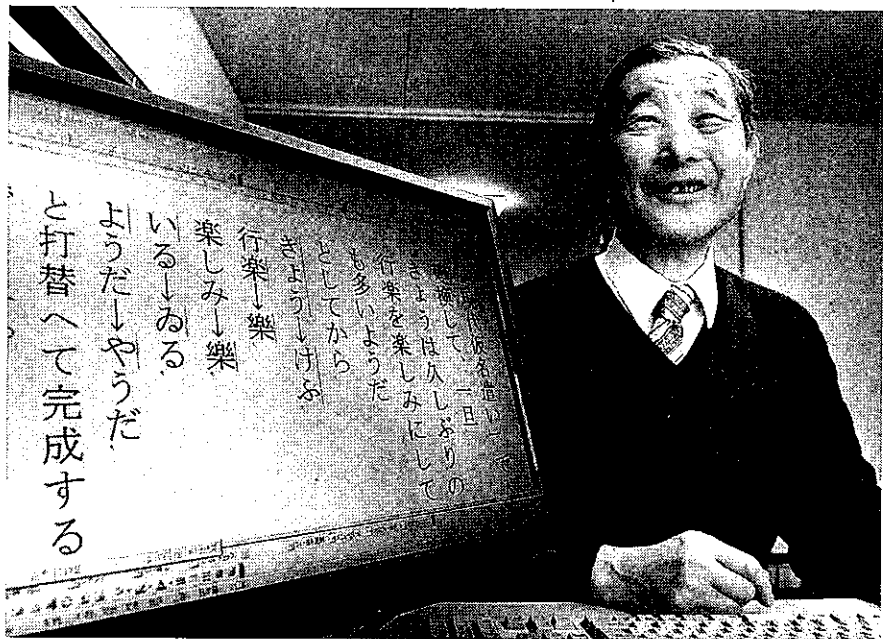 仮名遣い」で
して、一旦
きょうは久しぶりの
行楽を楽しみにして
も多いようだ
としてから
きょう→けふ
行楽→樂
楽しみ→樂
いる→ゐる
ようだ→やうだ
と打替へて完成する